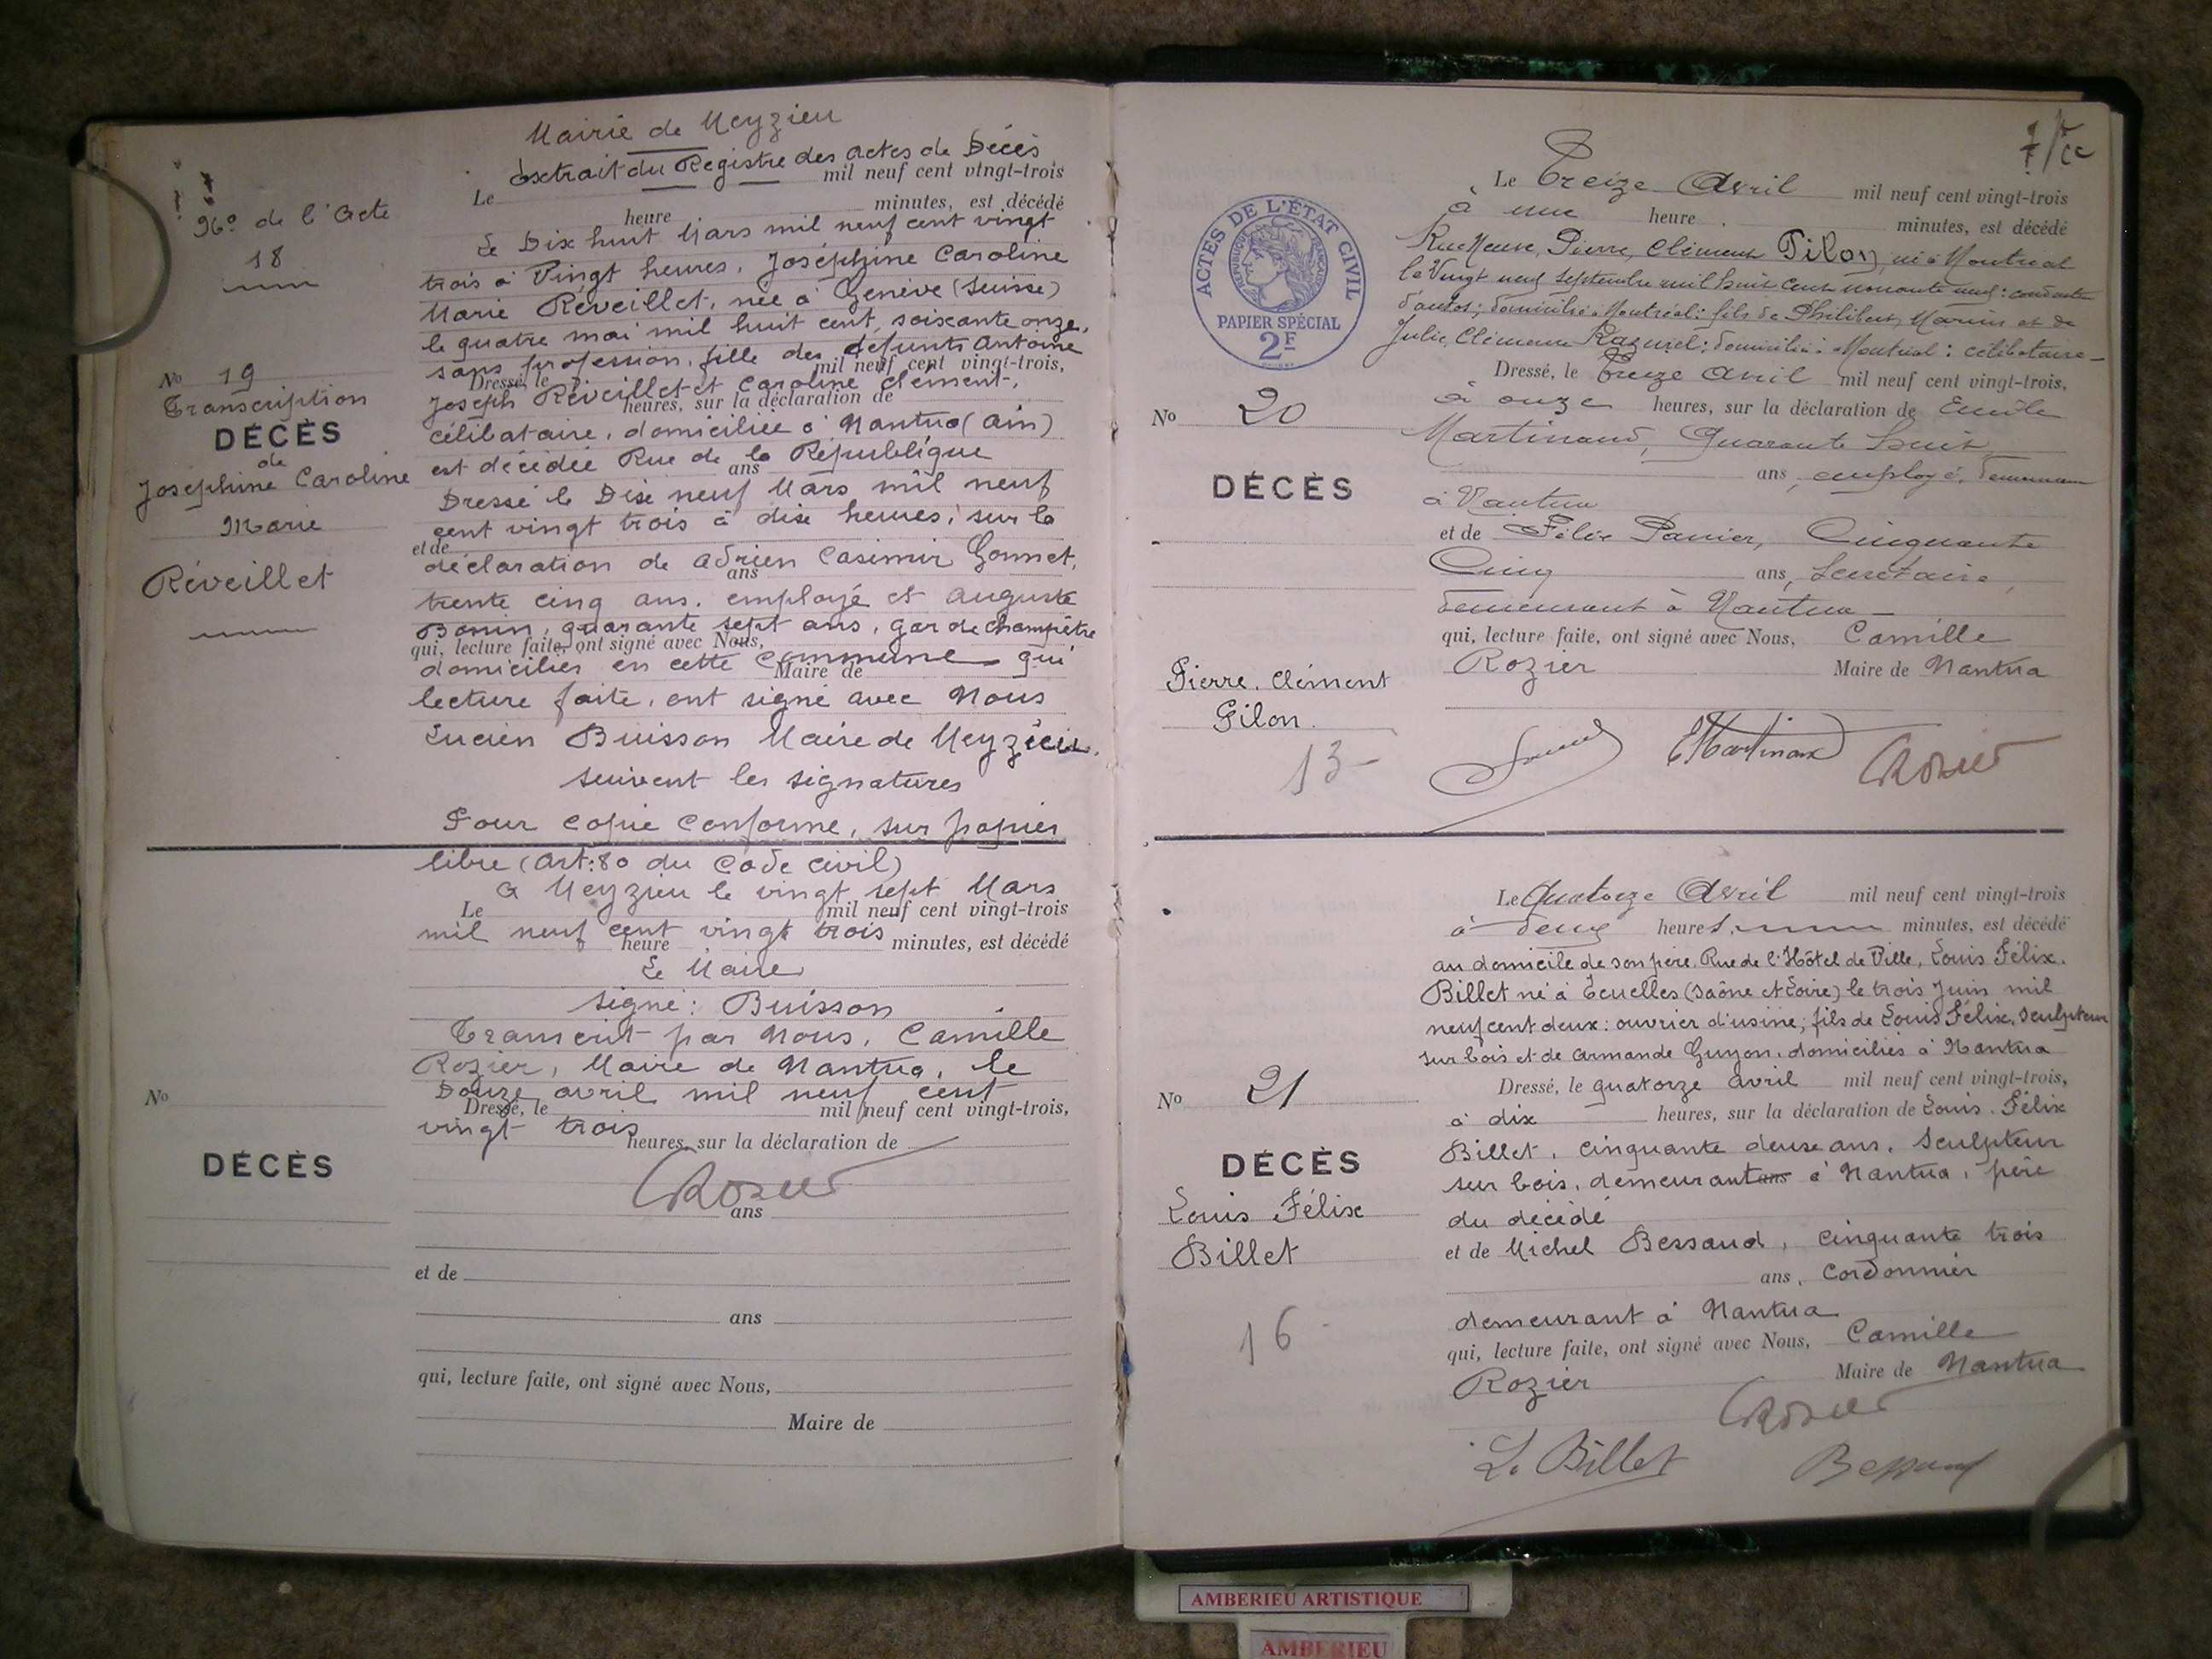 Mairie de Meyzieu
Extrait du Registre des actes de Décès
mil neuf cent vingt-trois
Le
heure minutes, est décédé
No de l'Acte
18
Le Dix huit Mars mil neuf cent vingt
trois à Vingt heures, Joséphine Caroline
Marie Réveillet, née à Genève (Suisse)
le quatre mai mil huit cent soixante onze,
sans profession, fille des défunts Antoine
Dressé, le mil neuf cent vingt-trois,
Joseph Réveillet et Caroline Clément,
heures, sur la déclaration de
célibataire, domiciliée à Nantua (Ain)
est décédée Rue de la République
ans
No 19
Transcription
DÉCÈS
de
Joséphine Caroline
Marie
Réveillet
Dressé le Dix neuf Mars mil neuf
cent vingt trois à dix heures, sur la
et de
déclaration de Adrien Casimir Gonnet,
ans
trente cinq ans, employé et Auguste
Bonin, quarante sept ans, garde champêtre
qui, lecture faite, ont signé avec Nous,
domiciliés en cette commune qui
Maire de
lecture faite, ont signé avec Nous
Lucien Buisson Maire de Meyzieu.
suivent les signatures
Pour copie conforme, sur papier
libre (Art: 80 du Code civil)
A Meyzieu le vingt sept Mars
Le mil neuf cent vingt-trois
mil neuf cent vingt trois
heure minutes, est décédé
Le Maire
signé: Buisson
Transcrit par Nous, Camille
Rozier, Maire de Nantua, le
Douze avril mil neuf cent
Dressé, le mil neuf cent vingt-trois,
vingt trois
heures, sur la déclaration de
CRozier
ans
No
DÉCÈS
et de
ans
qui, lecture faite, ont signé avec Nous,
Maire de
ACTES DE L'ÉTAT CIVIL
RÉPUBLIQUE FRANÇAISE
PAPIER SPÉCIAL
2F
Le Treize Avril mil neuf cent vingt-trois
à une heure minutes, est décédé
Rue Neuve, Pierre, Clément Pilon, né à Montréal
le Vingt neuf Septembre mil huit cent nonante neuf: conducteur
d'autos; domicilié à Montréal: fils de Philibert, Marius et de
Julie, Clémence domiciliés à Montréal: célibataire
Dressé, le Treize Avril mil neuf cent vingt-trois,
à onze heures, sur la déclaration de Emile
Martinand, Quarante huit
ans, employé, demeurant
à Nantua
et de Félix Panier, Cinquante
Cinq ans, Secrétaire,
demeurant à Nantua
qui, lecture faite, ont signé avec Nous, Camille
Rozier Maire de Nantua
No 20
DÉCÈS
Pierre, Clément
Pilon.
13
EMartinand CRozier
Le Quatorze Avril mil neuf cent vingt-trois
à deux heures minutes, est décédé
au domicile de son père, Rue de l'Hôtel de Ville, Louis Félix.
Billet né à Cuelles (Saône et Loire) le trois Juin mil
neuf cent deux: ouvrier d'usine; fils de Louis Félix, sculpteur
sur bois et de Armande Guyon, domiciliés à Nantua
Dressé, le quatorze avril mil neuf cent vingt-trois,
à dix heures, sur la déclaration de Louis Félix
Billet, cinquante deux ans, sculpteur
sur bois, demeurant ans à Nantua, père
du décédé
et de Michel Bessaud, cinquante trois
ans, cordonnier
demeurant à Nantua
qui, lecture faite, ont signé avec Nous, Camille
Rozier Maire de Nantua
No 21
DÉCÈS
Louis Félix
Billet
16
CRozier
L. Billet Bessaud
AMBERIEU ARTISTIQUE
AMBERIEU